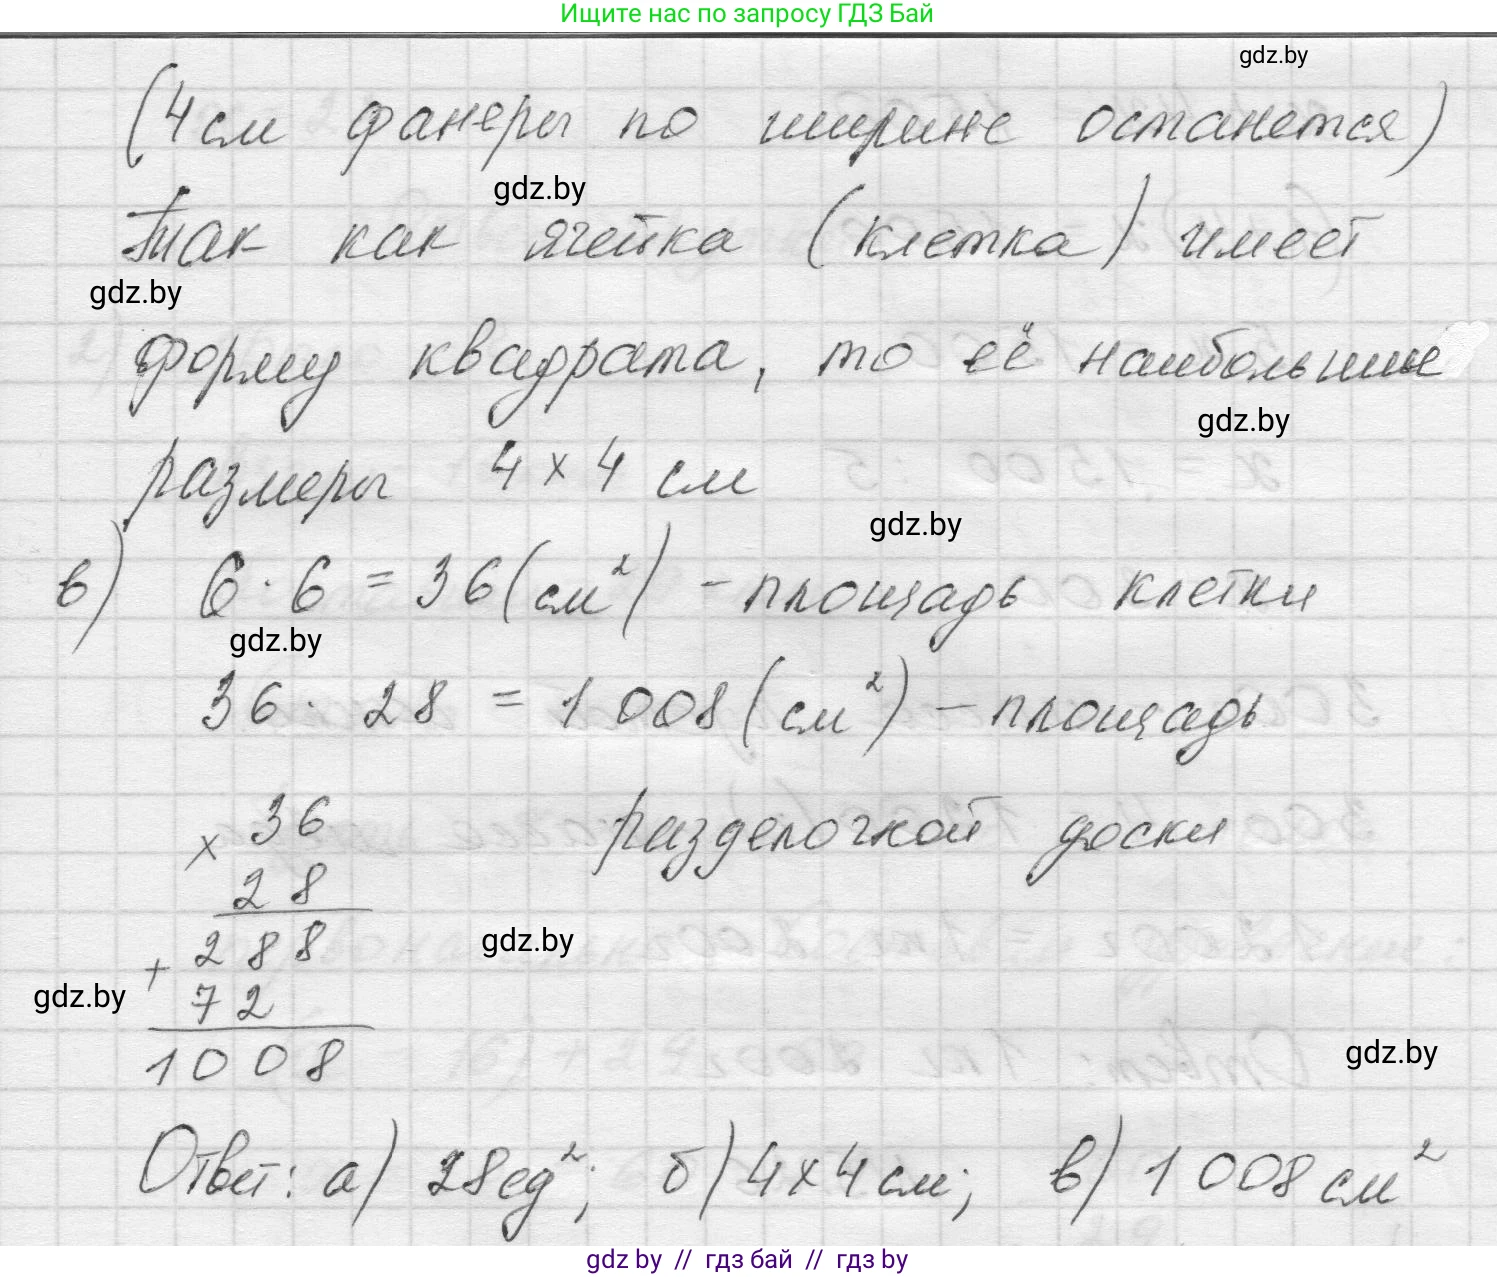 Ищите нас по запросу ГДЗ Бай
gdz.by
(4 см фанеры по ширине останется)
gdz.by
Так как ячейка (клетка) имеет
gdz.by
форму квадрата, то её наибольшие
gdz.by
размеры 4 × 4 см
gdz.by
в) 6 · 6 = 36 (см²) – площадь клетки
gdz.by
36 · 28 = 1 008 (см²) – площадь
разделочной доски
× 36
28
288
gdz.by
+ 72
gdz.by
1008
gdz.by
Ответ: а) 28 ед²; б) 4 × 4 см; в) 1 008 см²
gdz.by // гдз бай // гдз by